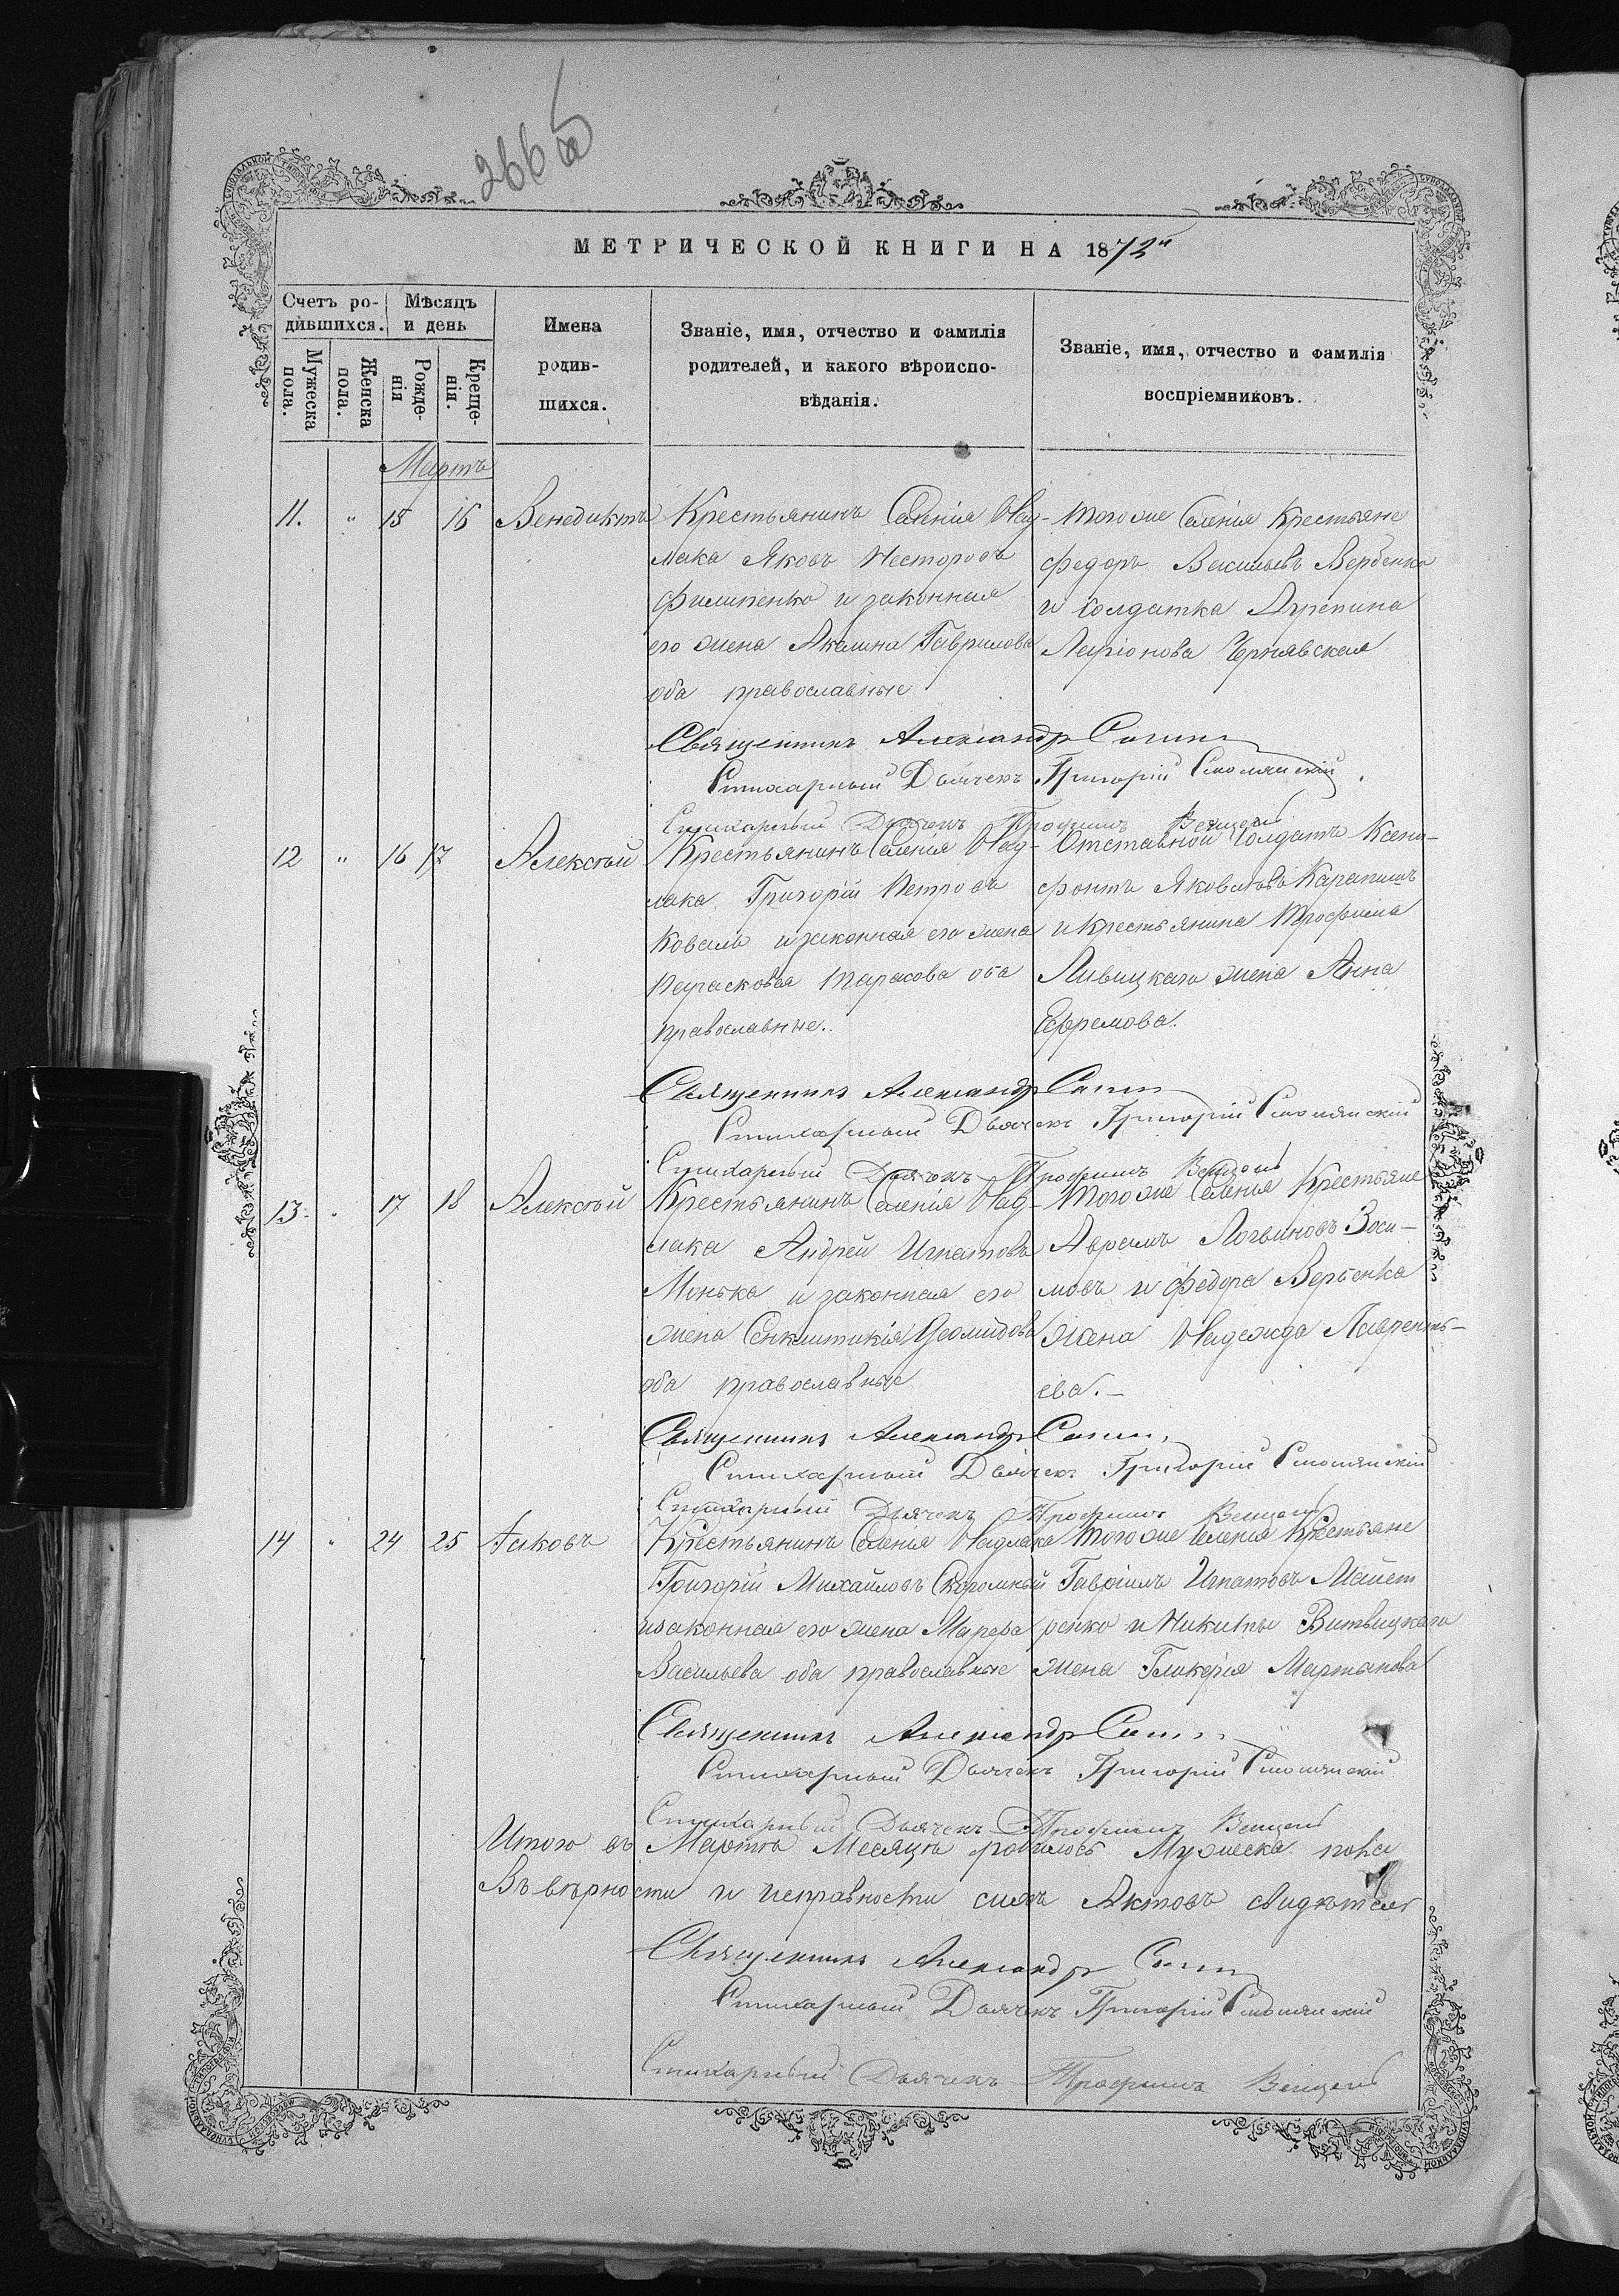 266 б
МЕТРИЧЕСКОЙ КНИГИ НА 1872й
Счетъ ро-
дившихся.
Мѣсяцъ
и день
Мужеска
пола.
Женска
пола.
Рожде-
нія
Креще-
нія.
Имена
родив-
шихся.
Званіе, имя, отчество и фамилія
родителей, и какого вѣроиспо-
вѣданія.
Званіе, имя, отчество и фамилія
воспріемниковъ.
Мартъ
11. " 15 16 Венедиктъ
Крестьянинъ Селенія Над-
лака Яковъ Несторовъ
Филипенко и законная
его жена Акилина Гаврилова
оба православные
Тогоже Селенія Крестьяне
Федоръ Васильевъ Вербенко
и Солдатка Агрепина
Ларіонова Чернявская
Священникъ Александръ
Стихарный Дьячекъ Григорій Смолянскій.
Стихарный Дьячекъ Трофимъ
12 " 16 17 Алексѣй
Крестьянинъ Селенія Над-
лака Григорій Петровъ
Коваль и законная его жена
Парасковья Тарасова оба
православные..
Отставной Солдатъ Ксено-
фонтъ Яковлевъ
и Крестьянина Трофима
Ливицкаго жена Анна
Ефремова.
Священникъ Александръ
Стихарный Дьячекъ Григорій Смолянскій
Стихарный Дьячекъ Трофимъ
13 " 17 18 Алексѣй
Крестьянинъ Селенія Над-
лака Андрей Игнатовъ
Монька и законная его
жена
оба православные
Тогоже Селенія Крестьяне
Аврамъ Логвиновъ Зоси-
мовъ и Федора Вербенка
жена Надежда Лаврентъ-
ева.-
Священникъ Александръ
Стихарный Дьячекъ Григорій Смолянскій
Стихарный Дьячекъ Трофимъ
14 " 24 25 Іаковъ
Крестьянинъ Селенія Надлака
Григорій Михайловъ Скоромный
изаконная его жена Марфа
Васильева оба православные
Тогоже Селенія Крестьяне
Гавріилъ Игнатовъ
ренко и Никиты Витвицкаго
жена Гликерія Мартынова
Священникъ Александръ
Стихарный Дьячекъ Григорій Смолянскій
Стихарный Дьячекъ Трофимъ
Итого въ Мартѣ Месяцѣ родилось Мужеска пола
Въ вѣрности и исправности сихъ Актовъ
Священникъ Александръ
Стихарный Дьячекъ Григорій Смолянскій
Стихарный Дьячекъ Трофимъ